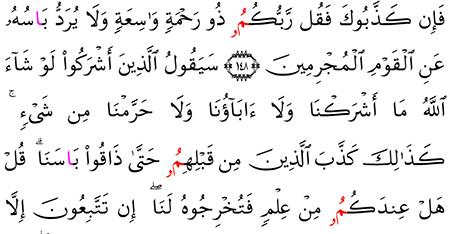 فَإِن كَذَّبُوكَ فَقُل رَّبُّكُمُۥ ذُو رَحْمَةٍ وَٰسِعَةٍ وَلَا يُرَدُّ بَاسُهُۥ
عَنِ ٱلْقَوْمِ ٱلْمُجْرِمِينَ ۝١٤٨ سَيَقُولُ ٱلَّذِينَ أَشْرَكُوا۟ لَوْ شَآءَ
ٱللَّهُ مَا أَشْرَكْنَا وَلَا ءَابَاؤُنَا وَلَا حَرَّمْنَا مِن شَىْءٍ ۚ
كَذَٰلِكَ كَذَّبَ ٱلَّذِينَ مِن قَبْلِهِمُۥ حَتَّىٰ ذَاقُوا۟ بَاسَنَا ۗ قُلْ
هَلْ عِندَكُمُۥ مِنْ عِلْمٍ فَتُخْرِجُوهُ لَنَا ۖ إِن تَتَّبِعُونَ إِلَّا